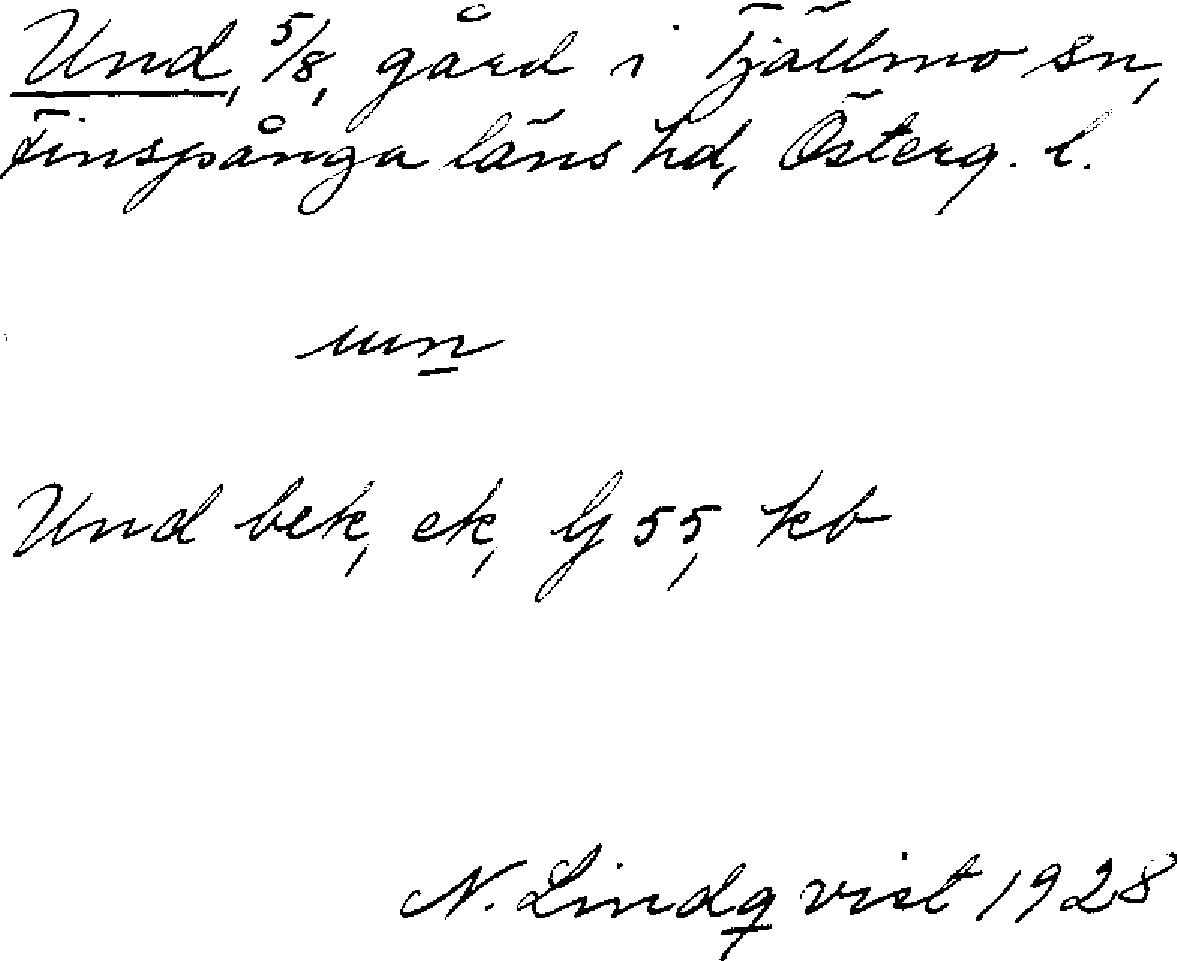 Und, 5/8, gård i Tjällmo sn,
Finspånga läns hd, Österg. l.
un
Und bek, ek, Gj 55, kb
N. Lindqvist 1928